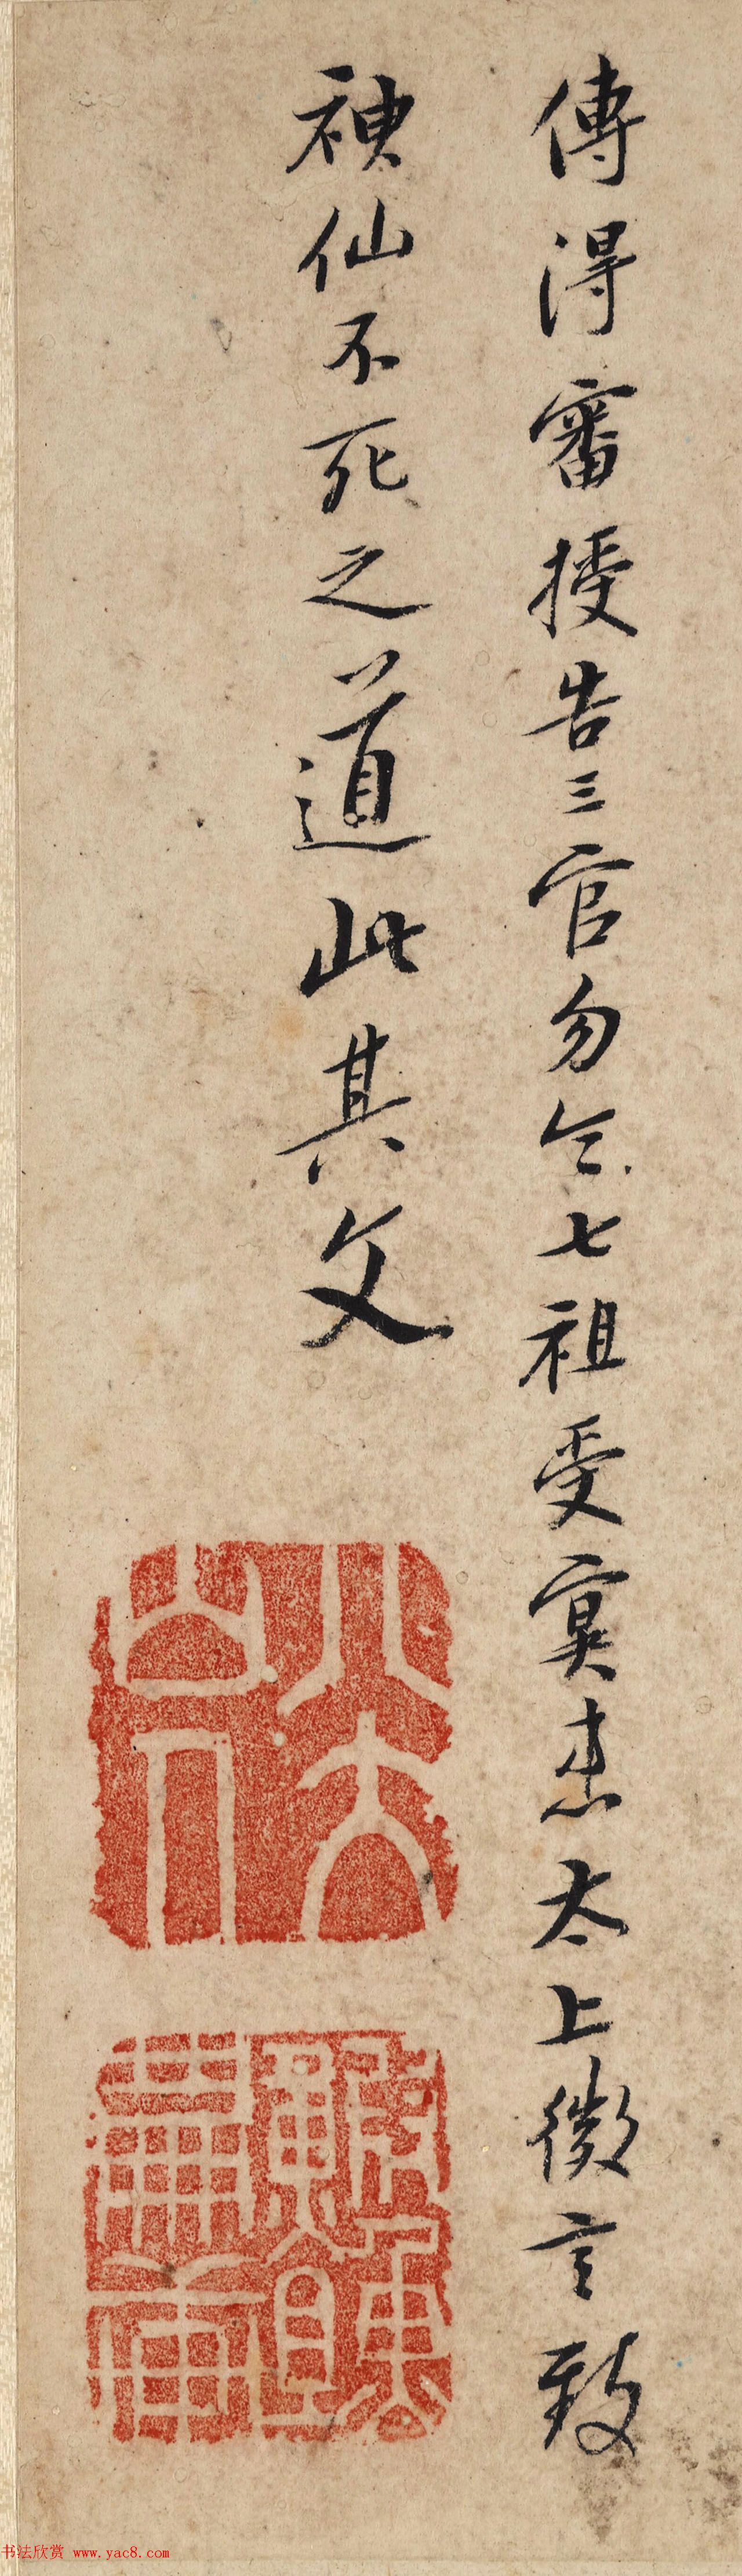 傳得審授告三官勿令七祖受冥患太上微言致
神仙不死之道此其文
书法欣赏 www.yac8.com